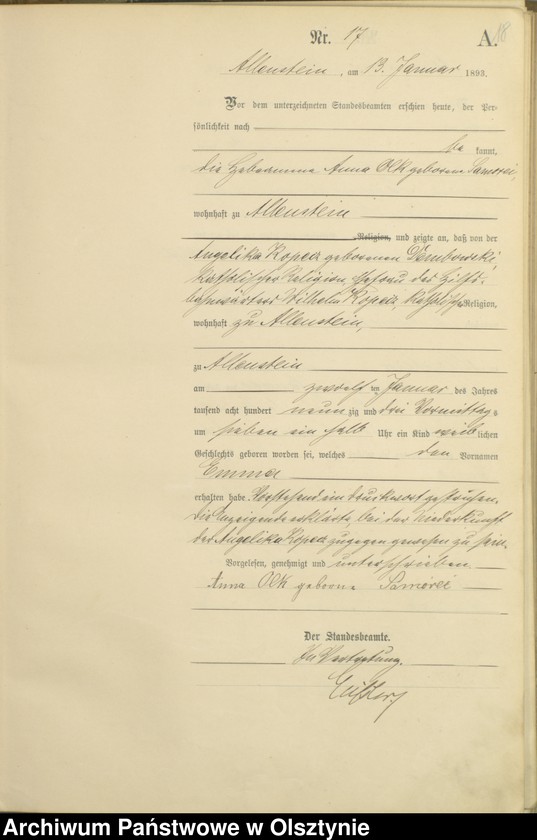 Nr. 17
A. 18
Allenstein, am 13. Januar 1893.
Vor dem unterzeichneten Standesbeamten erschien heute, der Per-
sönlichkeit nach
be kannt,
die Hebamme Anna Olk geborene Samorei,
wohnhaft zu Allenstein
Religion, und zeigte an, daß von der
Angelika Kopea geborenen Dembowski
katholischer Religion, Ehefrau des Hilfs-
bahnwärters Wilhelm Kopea, katholischer Religion,
wohnhaft zu Allenstein,
zu Allenstein
am zwölften Januar des Jahres
tausend acht hundert neunzig und drei Vormittags
um sieben ein halb Uhr ein Kind weiblichen
Geschlechts geboren worden sei, welches den Vornamen
Emma
erhalten habe. Vorstehend ein Druckwort gestrichen.
Die Anzeigende erklärte, bei der Niederkunft
der Angelika Kopea zugegen gewesen zu sein.
Vorgelesen, genehmigt und unterschrieben
Anna Olk geborne Samorei
Der Standesbeamte.
In Vertretung.
Archiwum Państwowe w Olsztynie